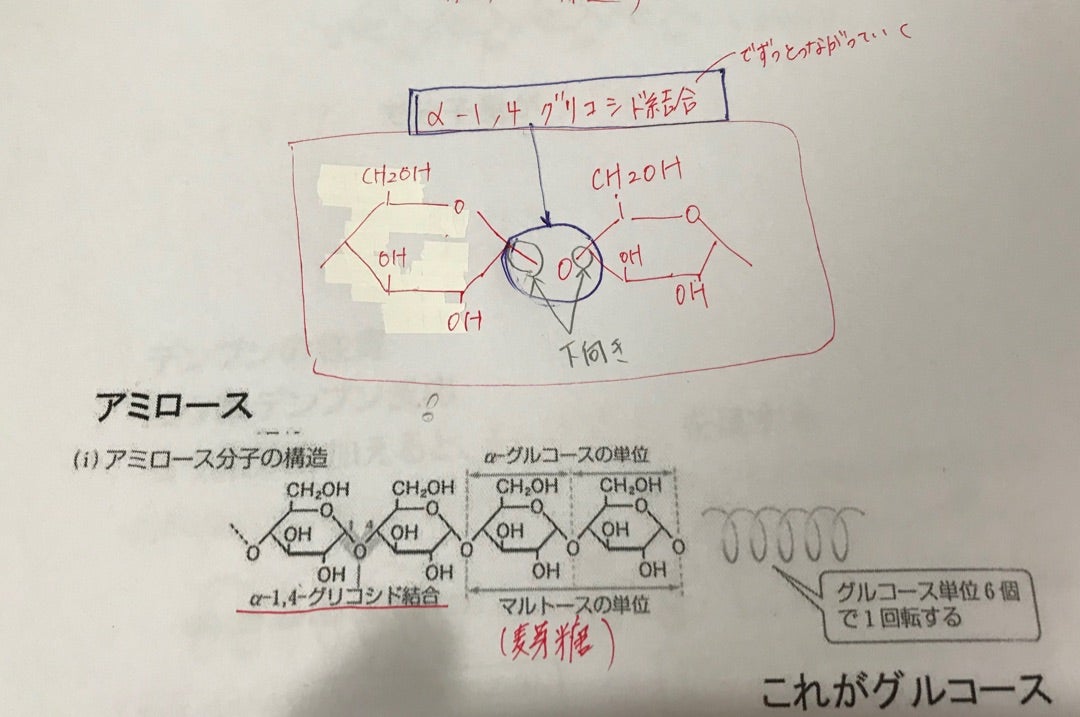 でずっとつながっていく
α-1,4グリコシド結合
CH2OH CH2OH
O O
OH O OH
OH OH
下向き
アミロース
(i)アミロース分子の構造
α-グルコースの単位
CH₂OH CH₂OH CH₂OH CH₂OH
O O O O
OH 1 4 OH OH OH
O O O O O
OH OH OH OH
α-1,4-グリコシド結合
マルトースの単位
(麦芽糖)
グルコース単位6個
で1回転する
これがグルコース